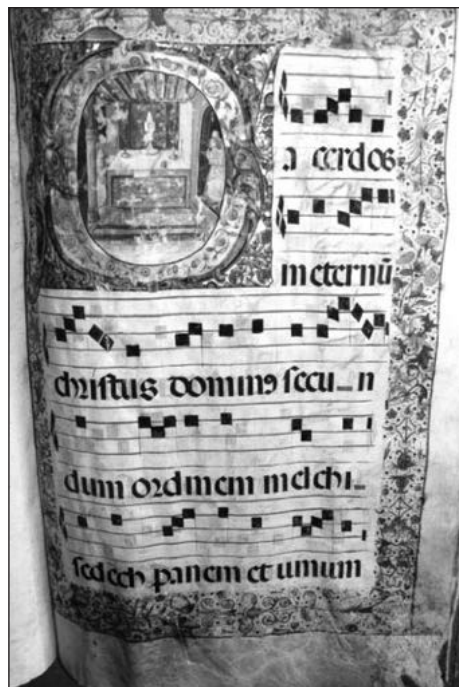 a cerdos
in eternū
christus dominꝰ secu_n
dum ordinem melchi_
sedech panem et uinum